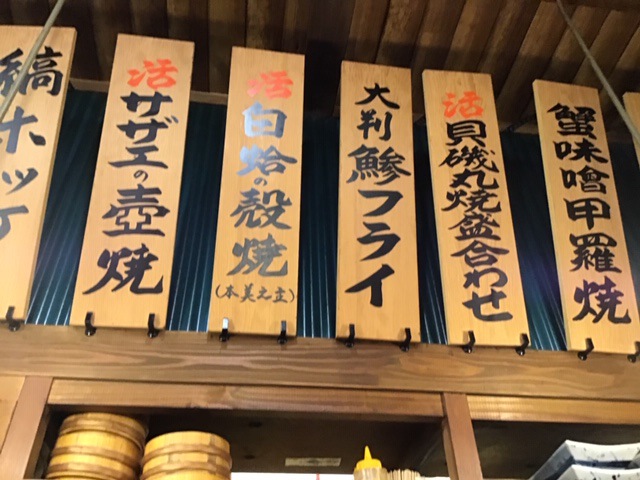 縞ホッケ
活サザエの壺焼
活白蛤の殻焼
(本美之主)
大判鯵フライ
活貝磯丸焼盛合わせ
蟹味噌甲羅焼